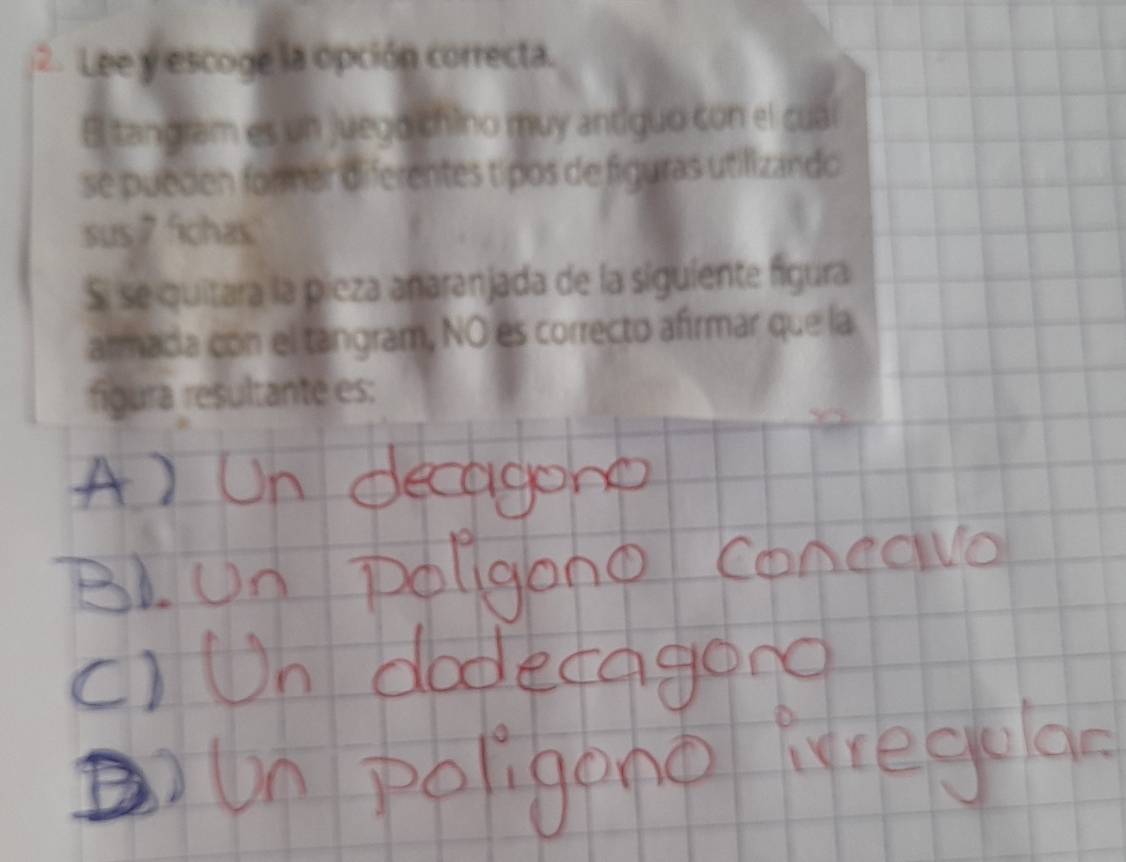 2. Lee y escoge la opción correcta.
El tangram es un juego chino muy antiguo con el cual
se pueden formar diferentes tipos de figuras utilizando
sus 7 fichas.
Si se quitara la pieza anaranjada de la siguiente figura
armada con el tangram, NO es correcto afirmar que la
figura resultante es:
A) Un decagono
B). Un poligono concavo
C) Un dodecagono
D) Un poligono irregular